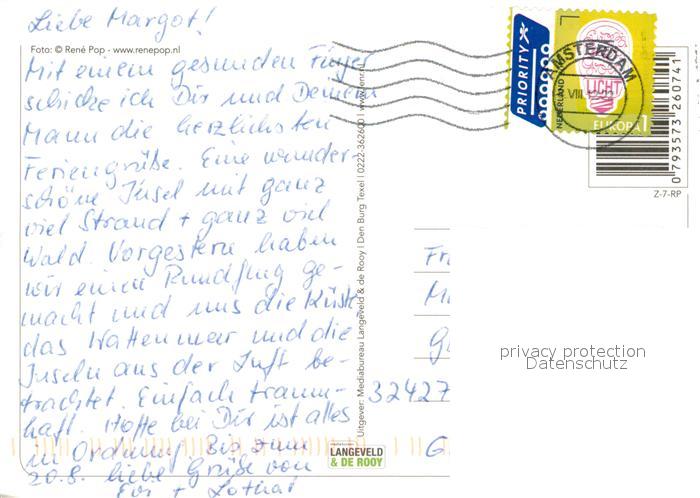 Liebe Margot!
Foto: © René Pop - www.renepop.nl
Mit einem gesunden Finger
schicke ich Dir und Deinem
Mann die herzlichsten
Feriengrüße. Eine wunder-
schöne Insel mit ganz
viel Strand + ganz viel
Wald. Vorgestern haben
wir einen Rundflug ge-
macht und uns die Küste,
das Wattenmeer und die
Inseln aus der Luft be-
trachtet. Einfach traum-
haft. Hoffe bei Dir ist alles
in Ordnung. Bis zum
20.8. liebe Grüße von
Evi + Lothar
Uitgever: Mediabureau Langeveld & de Rooy | Den Burg Texel | 0222-362600 |
LANGEVELD
& DE ROOY
PRIORITY
AMSTERDAM
VIII
NEDERLAND
LICHT
EUROPA 1
0 793573 260741
Z-7-RP
Fr
32427
G
privacy protection
Datenschutz